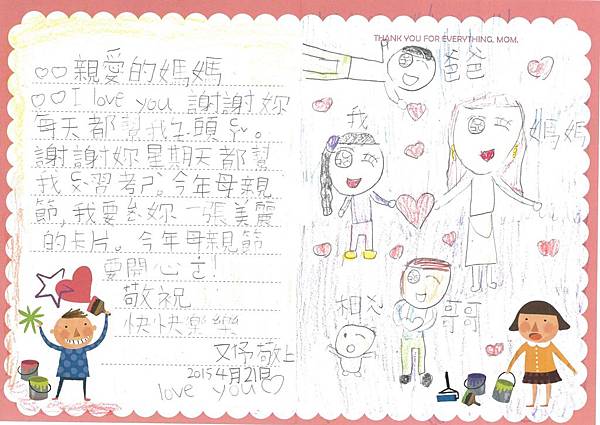 ♡♡親愛的媽媽
♡♡I love you 謝謝妳
每天都幫我頭。
謝謝妳星期天都幫
我習考ㄕˋ。今年母親
節,我要妳一張美麗
的卡片。今年母親節
要開心ㄛ!
敬祝
快快樂樂
又伃敬上
2015 4月21日
love you♡
THANK YOU FOR EVERYTHING, MOM.
爸爸
我
媽媽
哥哥